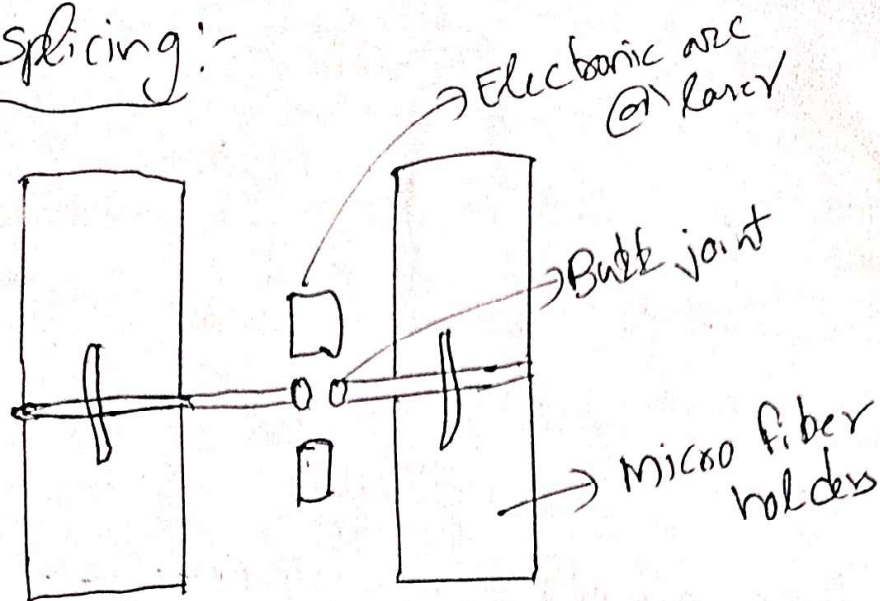 splicing:-
Electronic arc
(or) laser
Butt joint
Micro fiber
holders